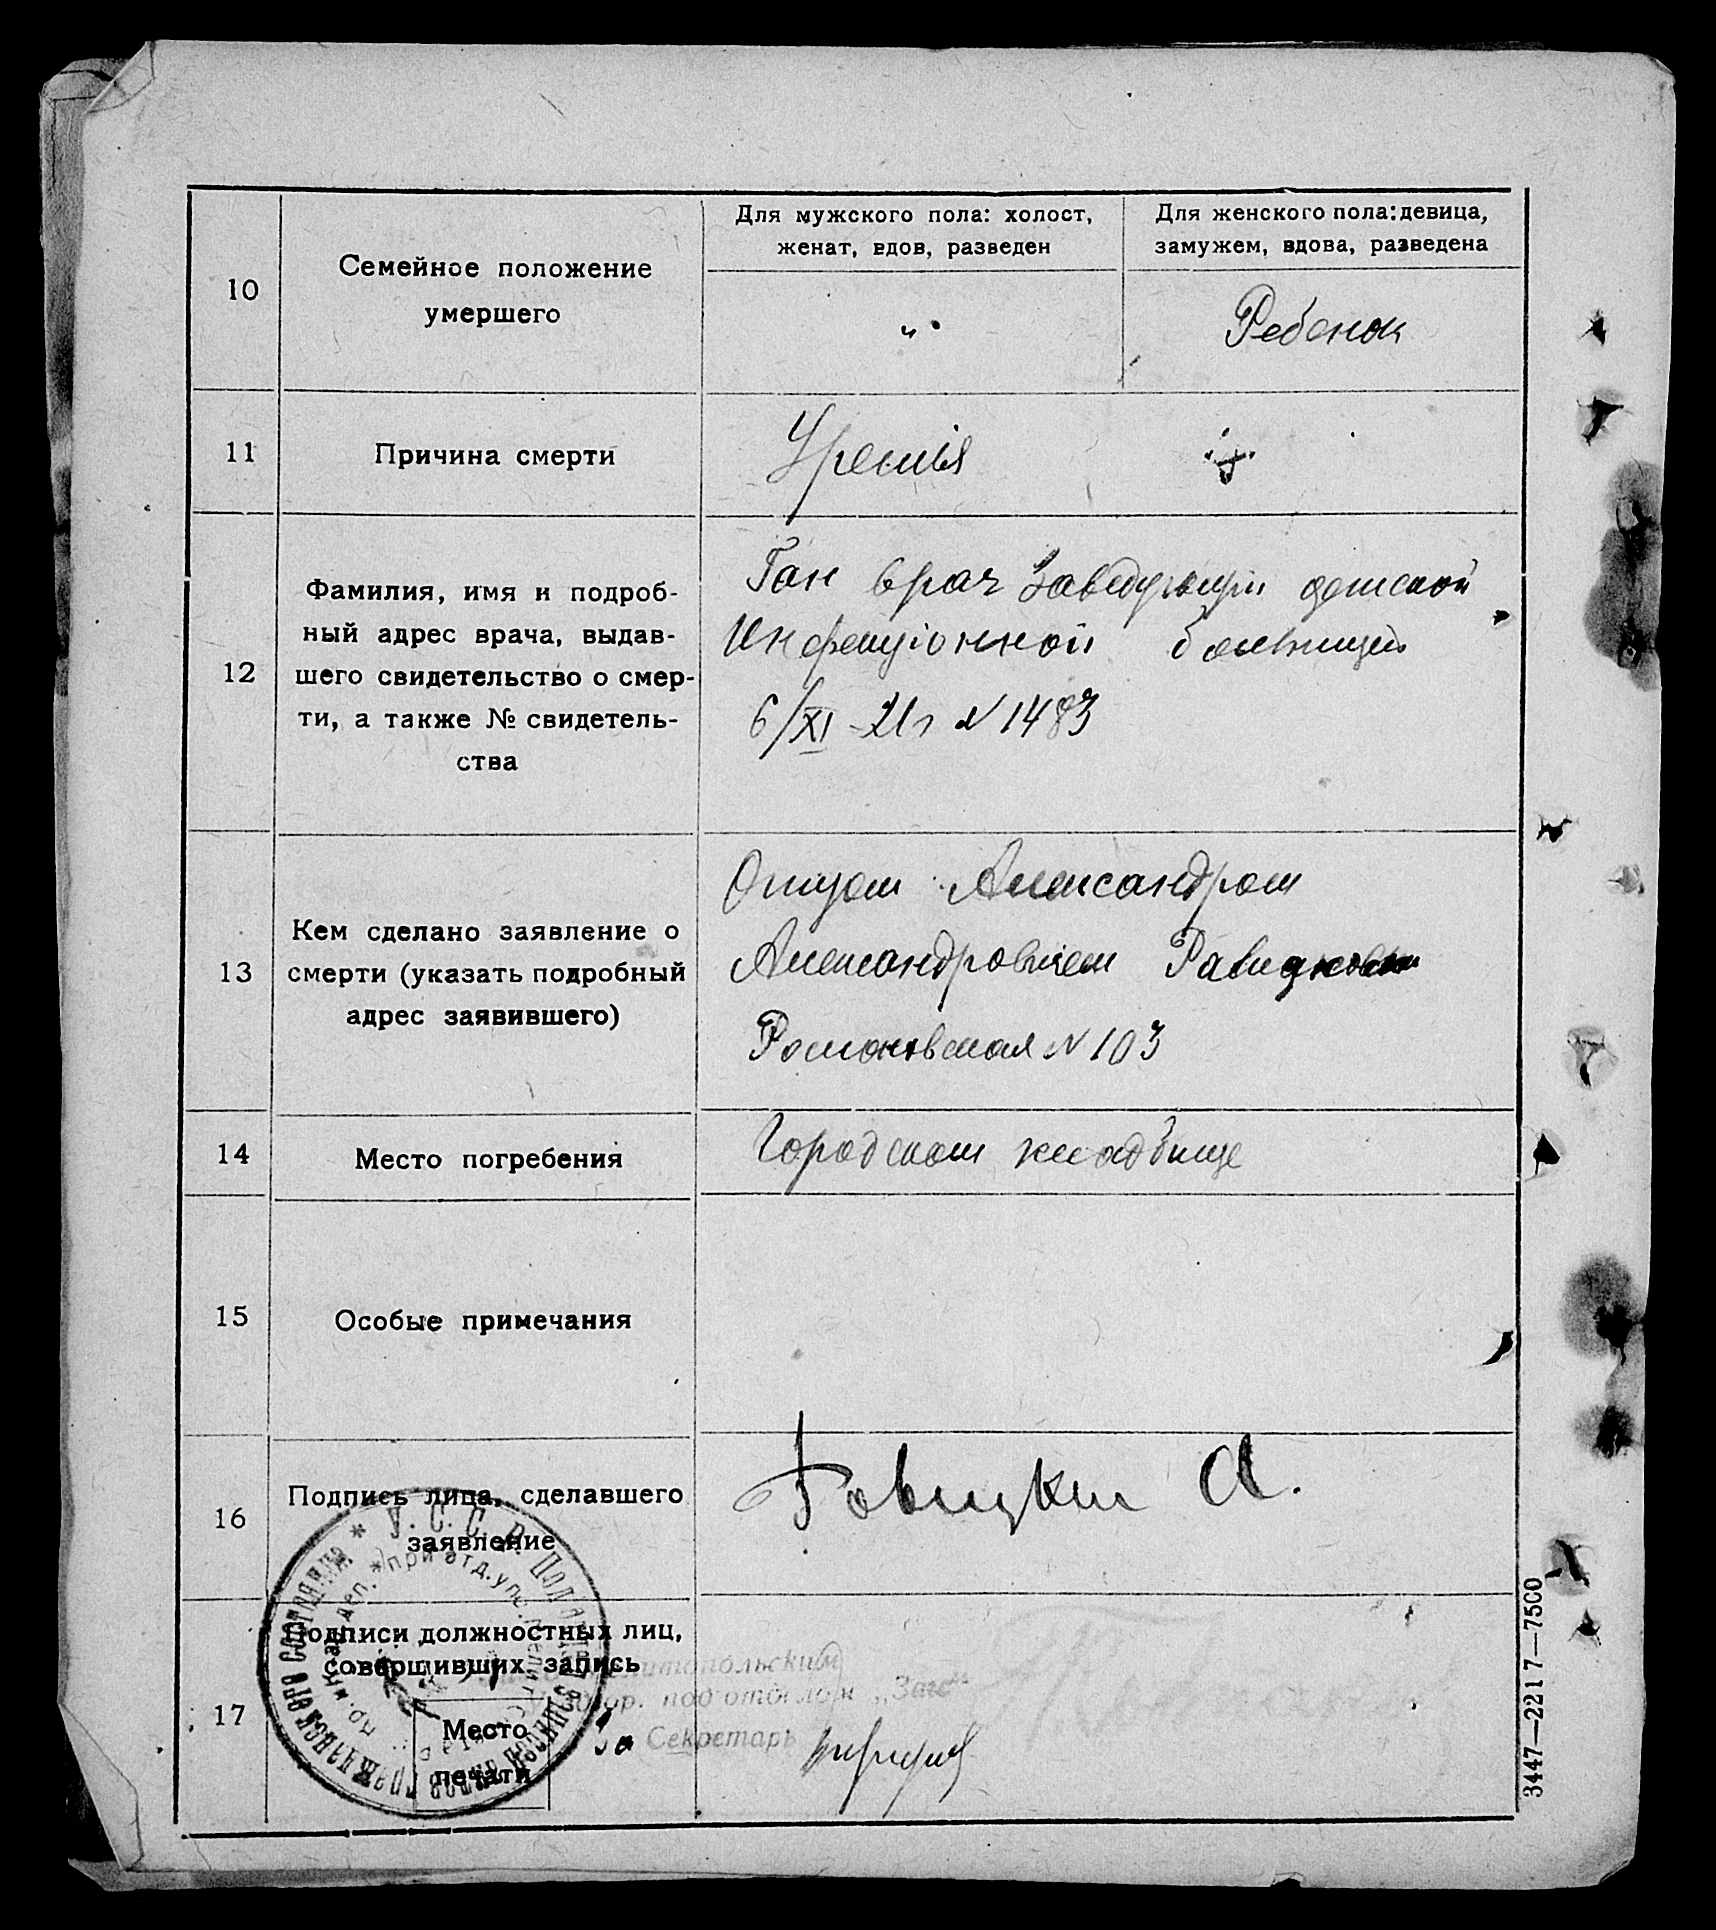 10
Семейное положение
умершего
Для мужского пола: холост,
женат, вдов, разведен
Для женского пола: девица,
замужем, вдова, разведена
"
Ребенок
11
Причина смерти
Уремия
12
Фамилия, имя и подроб-
ный адрес врача, выдав-
шего свидетельство о смер-
ти, а также № свидетель-
ства
Ган врач Заведующий детской
Инфекціонной больницей
6/XI-21г N 1483
13
Кем сделано заявление о
смерти (указать подробный
адрес заявившего)
Отцом Александром
Александровичем
Романовская N 103
14
Место погребения
Городском кладбище
15
Особые примечания
16
Подпись лица, сделавшего
заявление
А.
17
Подписи должностных лиц,
совершивших запись
Место
печати
* У. С. С. Р.
гражданского состояния
при отд. упр.
Мелитопольским
подотделом „Загс"
За Секретарь
3447—2217—7500